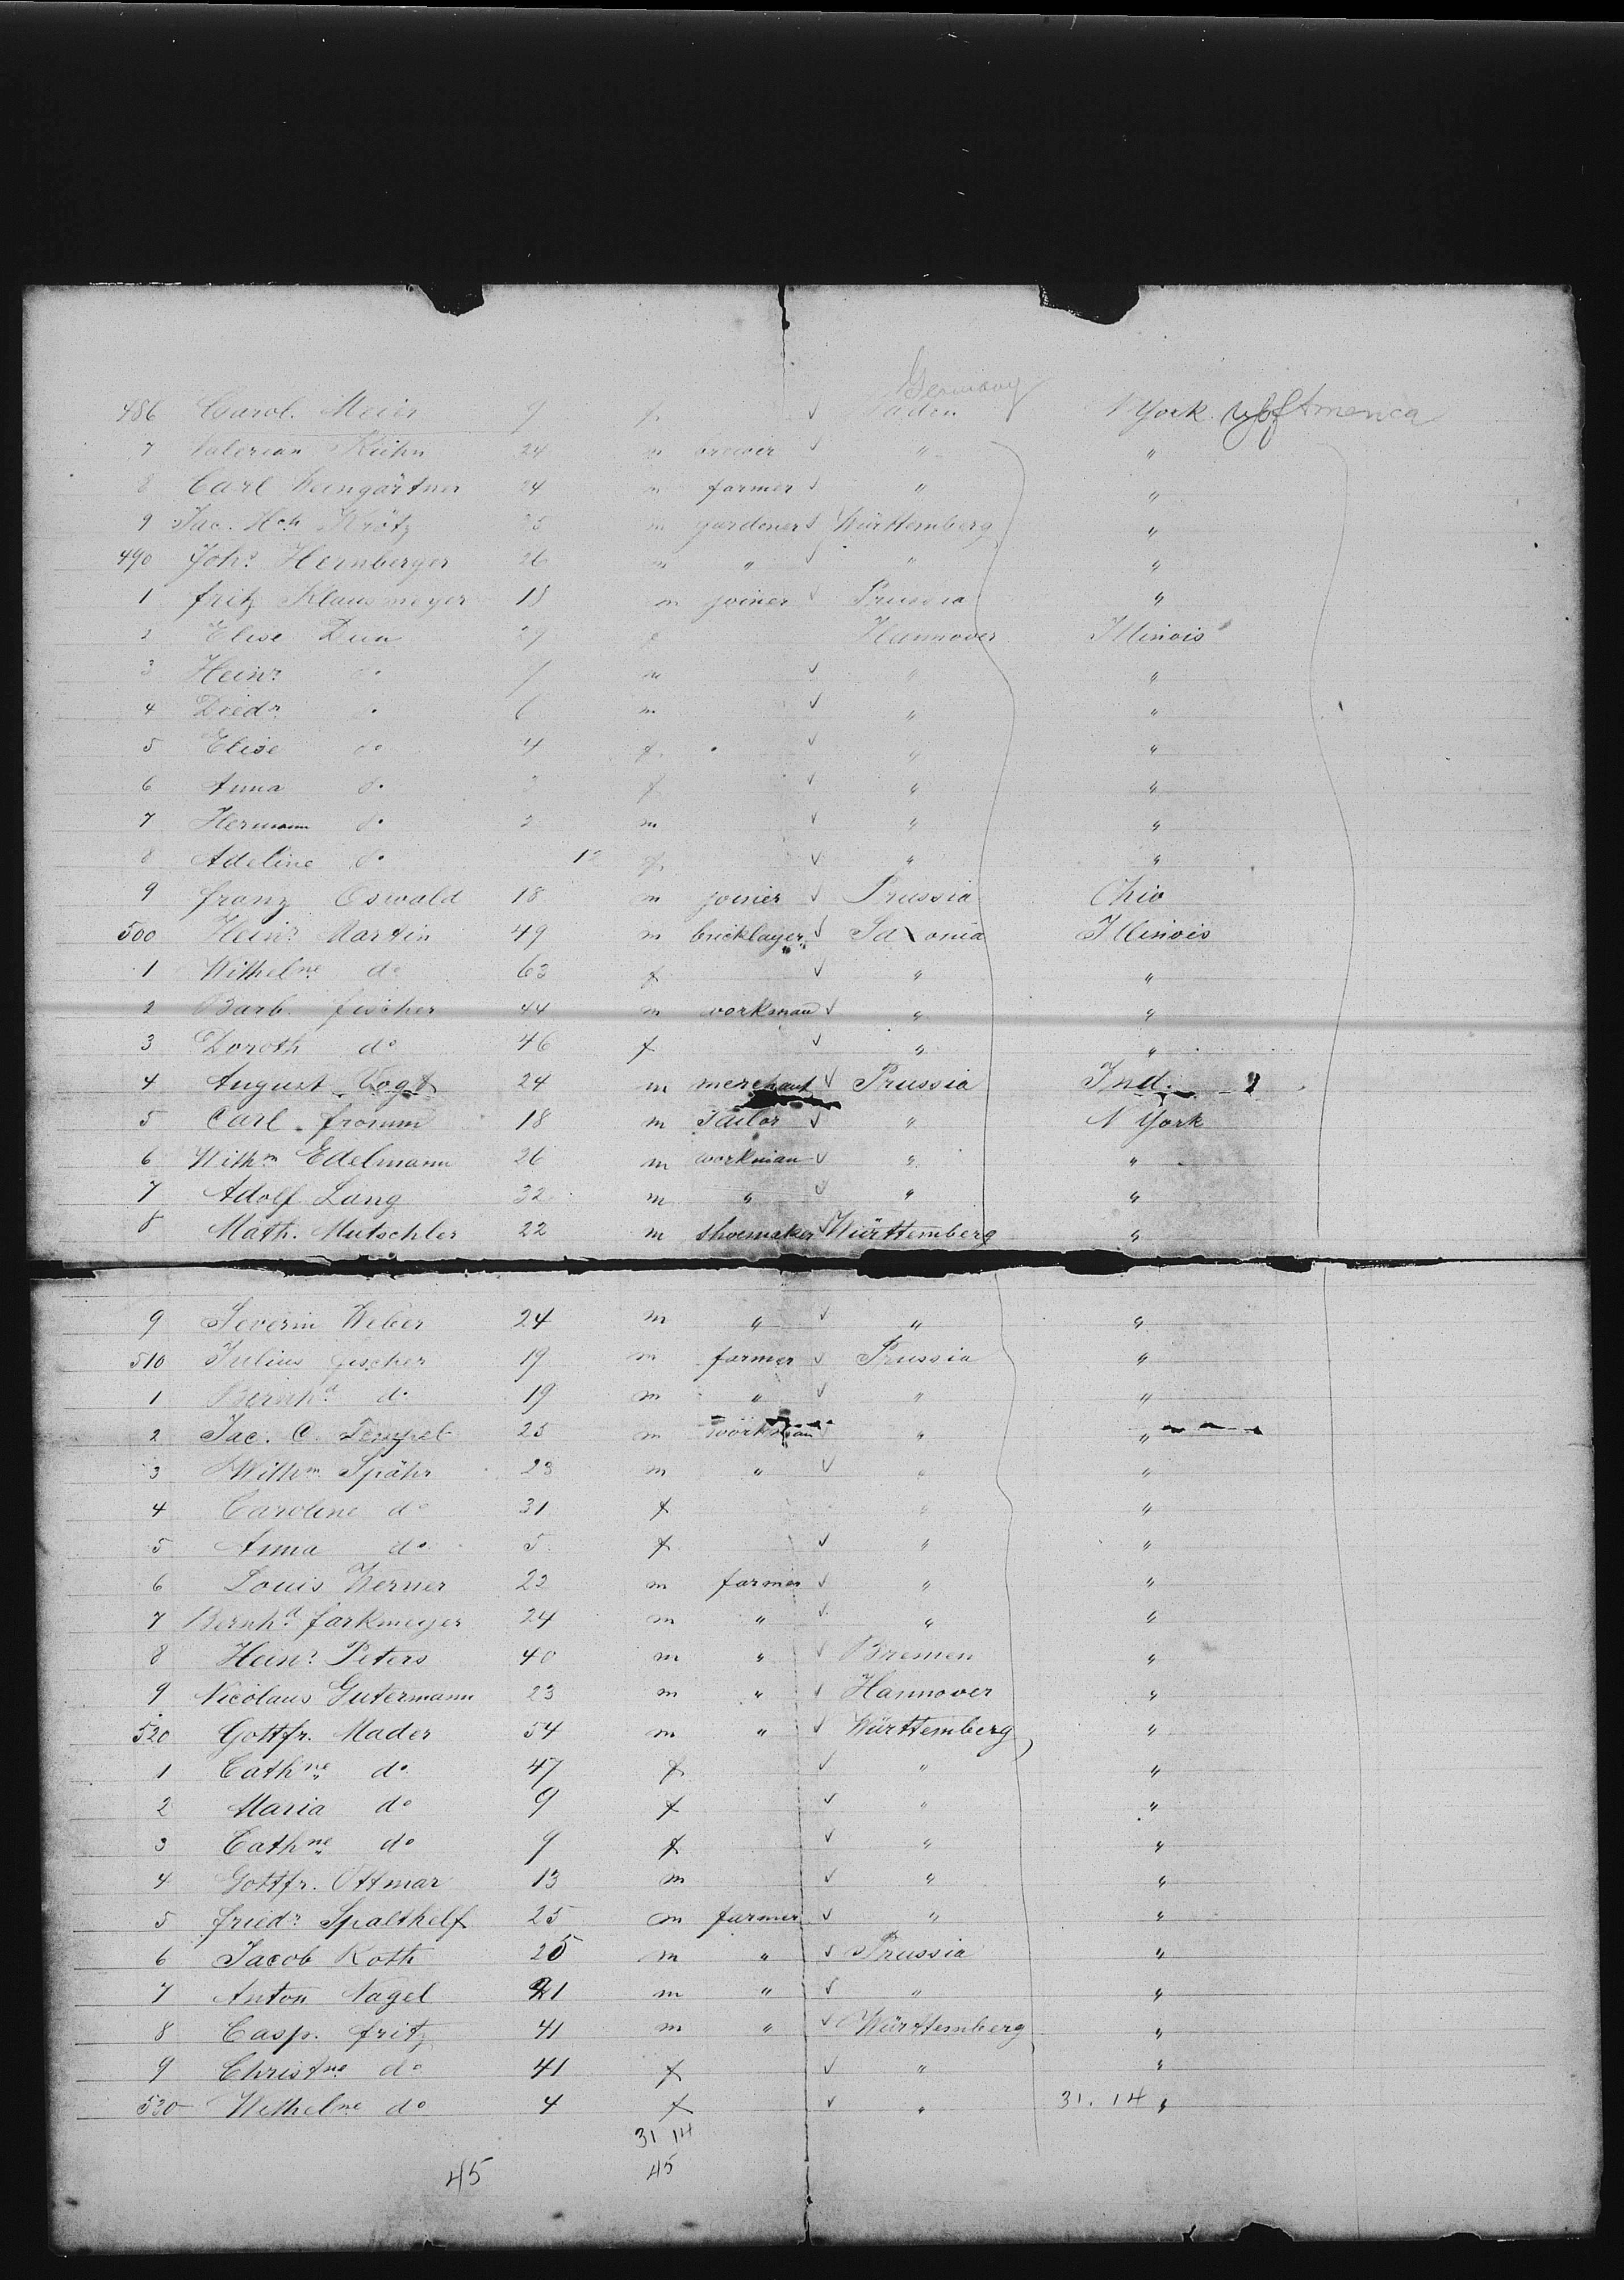 Germany
486 Carol. Meier 9 f ✓ Baden N York U. S. of America
7 Valerian Kühn 24 m brewer ✓ " "
8 Carl Weingärtner 24 m farmer ✓ " "
9 Jac. Hch Krötz 25 m gardener ✓ Württemberg "
490 Johs Hernberger 26 m " ✓ " "
1 fritz Klausmeyer 18 m joiner ✓ Prussia "
2 Elise Dun 29 f Hannover Illinois
3 Heinr do 9 m ✓ " "
4 Diedr do 6 m ✓ " "
5 Elise do 4 f ✓ " "
6 Anna do 3 f ✓ " "
7 Hermann do 2 m ✓ " "
8 Adeline do f ✓ " "
9 franz Oswald 18 m joiner ✓ Prussia Ohio
500 Heinr Martin 49 m bricklayer ✓ Saxonia Illinois
1 Wilhelne do 63 f ✓ " "
2 Barb. fischer 44 m workman ✓ " "
3 Doroth do 46 f ✓ " "
4 August Vogt 24 m merchant ✓ Prussia Ind.
5 Carl fromm 18 m Tailor ✓ " N York
6 Wilhm Edelmann 26 m workman ✓ " "
7 Adolf Lang 32 m " ✓ " "
8 Math. Mutschler 22 m shoemaker ✓ Württemberg "
9 Severin Weber 24 m " ✓ " "
510 Julius fischer 19 m farmer ✓ Prussia "
1 Bernhd do 19 m " ✓ " "
2 Jac. C. Tempel 25 m workman ✓ " "
3 Wilhm Spähr 23 m " ✓ " "
4 Caroline do 31 f " "
5 Anna do 5 f ✓ " "
6 Louis Werner 22 m farmer ✓ " "
7 Bernhd farkmeyer 24 m " ✓ " "
8 Heinr Peters 40 m " ✓ Bremen "
9 Nicolaus Gutermann 23 m " ✓ Hannover "
520 Gottfr. Mader 54 m " ✓ Württemberg "
1 Cathne do 47 f ✓ " "
2 Maria do 9 f ✓ " "
3 Cathne do 9 f ✓ " "
4 Gottfr. Ottmar 13 m ✓ " "
5 friedr Spalthelf 25 m farmer ✓ " "
6 Jacob Roth 25 m " ✓ Prussia "
7 Anton Nagel 21 m " ✓ " "
8 Casp. fritz 41 m " ✓ Württemberg "
9 Christne do 41 f ✓ " "
530 Wilhelne do 4 f ✓ " 31. 14 "
31 14
45 45